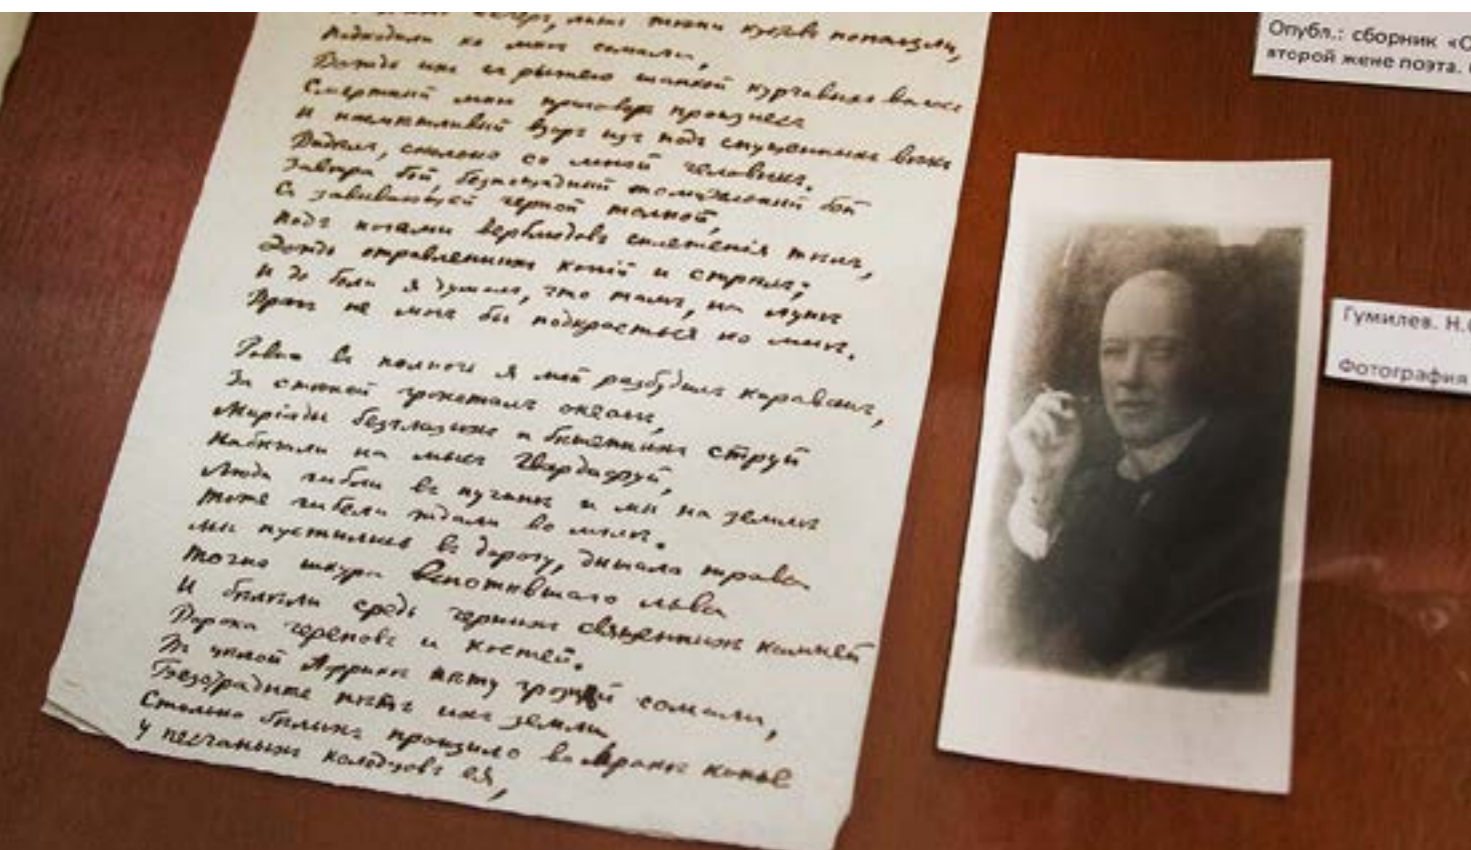 вечеръ, лишь тѣни кустовъ поползли,
Подходили ко мнѣ сомали,
Вождь ихъ съ рыжею шапкой курчавыхъ волосъ
Смертный мнѣ приговоръ произнесъ
И насмѣшливый взоръ изъ подъ спущенныхъ вѣкъ
Видѣлъ, сколько со мной человѣкъ.
Завтра бой, безпощадный томительный бой
Съ завывающей черной толпой,
Подъ ногами верблюдовъ сплетенія тѣлъ,
Дождь отравленныхъ копій и стрѣлъ;
И до боли я думалъ, что тамъ, на лунѣ
Врагъ не могъ бы подкрасться ко мнѣ.
Ровно въ полночь я мой разбудилъ караванъ,
За стѣной грохоталъ океанъ,
Миріады безглазыхъ и бѣшенныхъ струй
Набѣгали на мысъ Гвардафуй,
Люди гибли въ пучинѣ и мы на землѣ
Тоже гибели ждали во мглѣ.
Мы пустились въ дорогу, дышала трава
Точно шкура вспотѣвшаго льва
И бѣлѣли средь черныхъ священныхъ камнѣй
Вороха череповъ и костей.
Въ цѣлой Африкѣ нѣту грознѣй сомали,
Безотраднѣе нѣтъ ихъ земли
Столько бѣлыхъ пронзило во мракѣ копье
У песчаныхъ колодцевъ ея,
Опубл.: сборник «О
второй жене поэта.
Гумилев. Н.С
Фотография